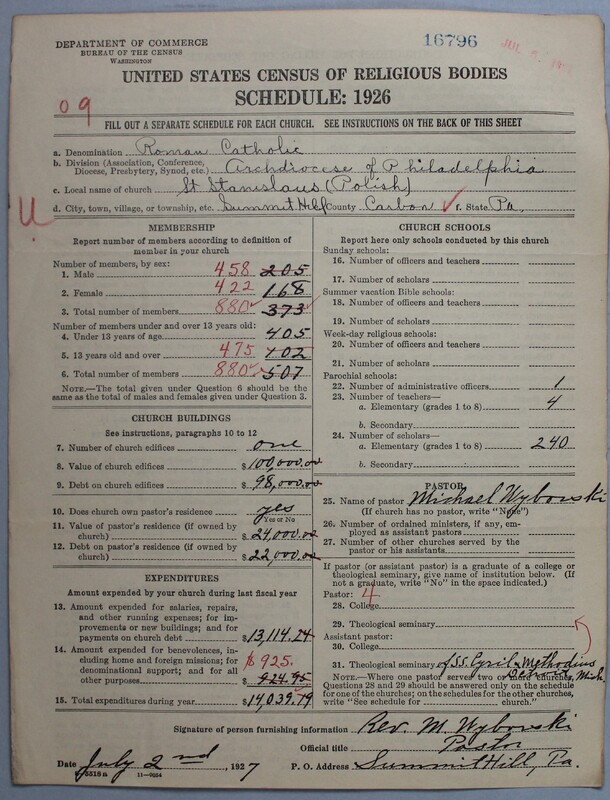 DEPARTMENT OF COMMERCE
BUREAU OF THE CENSUS
WASHINGTON
16796
JUL 5
UNITED STATES CENSUS OF RELIGIOUS BODIES
SCHEDULE: 1926
09
FILL OUT A SEPARATE SCHEDULE FOR EACH CHURCH. SEE INSTRUCTIONS ON THE BACK OF THIS SHEET
a. Denomination Roman Catholic
b. Division (Association, Conference, Diocese, Presbytery, Synod, etc.) Archdiocese of Philadelphia
c. Local name of church St Stanislaus (Polish)
d. City, town, village, or township, etc. Summit Hill County Carbon f. State Pa.
MEMBERSHIP
Report number of members according to definition of
member in your church
Number of members, by sex:
1. Male 458 205
2. Female 422 168
3. Total number of members 880 373
Number of members under and over 13 years old:
4. Under 13 years of age 405
5. 13 years old and over 475 102
6. Total number of members 880 507
NOTE.—The total given under Question 6 should be
same as the total of males and females given under Question 3.
CHURCH BUILDINGS
See instructions, paragraphs 10 to 12
7. Number of church edifices one
8. Value of church edifices $100,000.00
9. Debt on church edifices $98,000.00
10. Does church own pastor's residence yes
Yes or No
11. Value of pastor's residence (if owned by
church) $24,000.00
12. Debt on pastor's residence (if owned by
church) $22,000.00
EXPENDITURES
Amount expended by your church during last fiscal year
13. Amount expended for salaries, repairs,
and other running expenses; for im-
provements or new buildings; and for
payments on church debt $13,114.24
14. Amount expended for benevolences, in-
cluding home and foreign missions; for
denominational support; and for all
other purposes $925. $924.95
15. Total expenditures during year $14,039.19
CHURCH SCHOOLS
Report here only schools conducted by this church
Sunday schools:
16. Number of officers and teachers
17. Number of scholars
Summer vacation Bible schools:
18. Number of officers and teachers
19. Number of scholars
Week-day religious schools:
20. Number of officers and teachers
21. Number of scholars
Parochial schools:
22. Number of administrative officers 1
23. Number of teachers—
a. Elementary (grades 1 to 8) 4
b. Secondary
24. Number of scholars—
a. Elementary (grades 1 to 8) 240
b. Secondary
PASTOR
25. Name of pastor Michael Wybowski
(If church has no pastor, write "None")
26. Number of ordained ministers, if any, em-
ployed as assistant pastors
27. Number of other churches served by the
pastor or his assistants
If pastor (or assistant pastor) is a graduate of a college or
theological seminary, give name of institution below. (If
not a graduate, write "No" in the space indicated.)
Pastor: 4
28. College
29. Theological seminary
Assistant pastor:
30. College
31. Theological seminary of SS. Cyril & Methodius
Detroit, Mich
NOTE.—Where one pastor served two or more churches,
Questions 28 and 29 should be answered only on the schedule
for one of the churches; on the schedules for the other churches,
write "See schedule for church."
Signature of person furnishing information Rev. M. Wybowski
Official title Pastor
Date July 2nd, 1927 P. O. Address Summit Hill, Pa.
8518a 11—9054